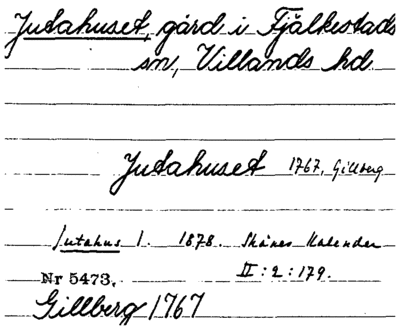 Jutahuset, gård i Fjälkestads
sn, Villands hd.
Jutahuset 1767, Gillberg
Jutahus 1. 1878. Skånes Kalender
Nr 5473. II:2:179.
Gillberg 1767